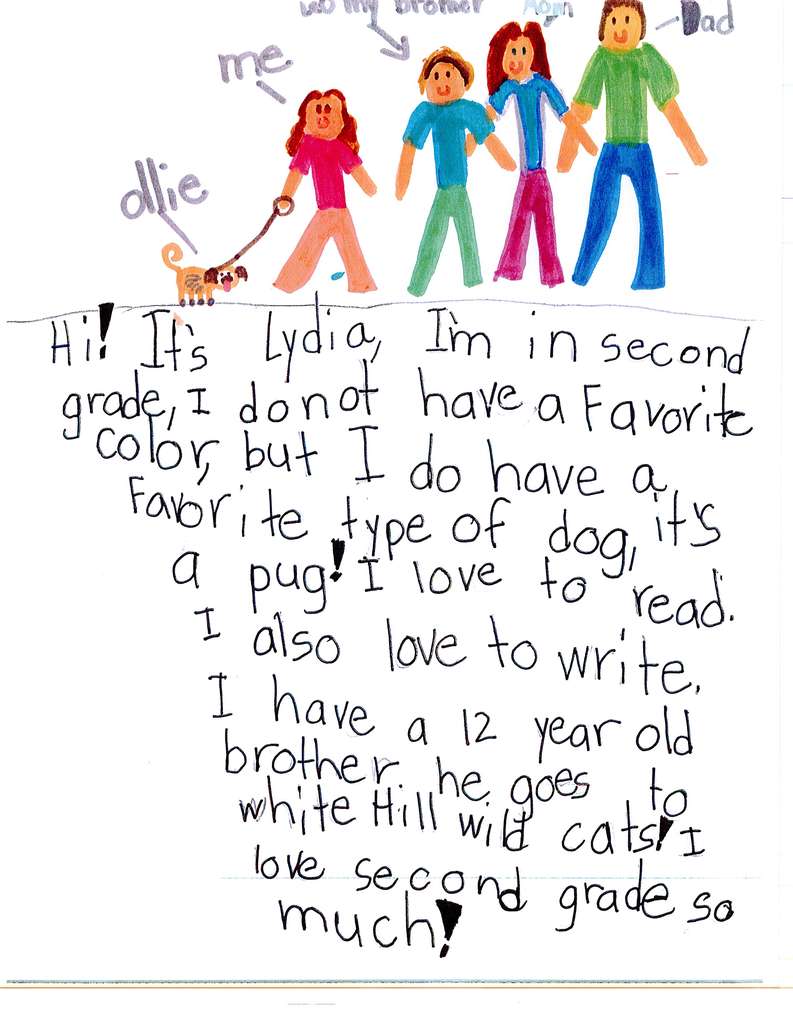 my brother
Mom
Dad
me
ollie
Hi! It's Lydia, I'm in second
grade, I do not have a Favorite
color, but I do have a
Favorite type of dog, it's
a pug! I love to read.
I also love to write.
I have a 12 year old
brother he goes to
white Hill wild cats! I
love second grade so
much!